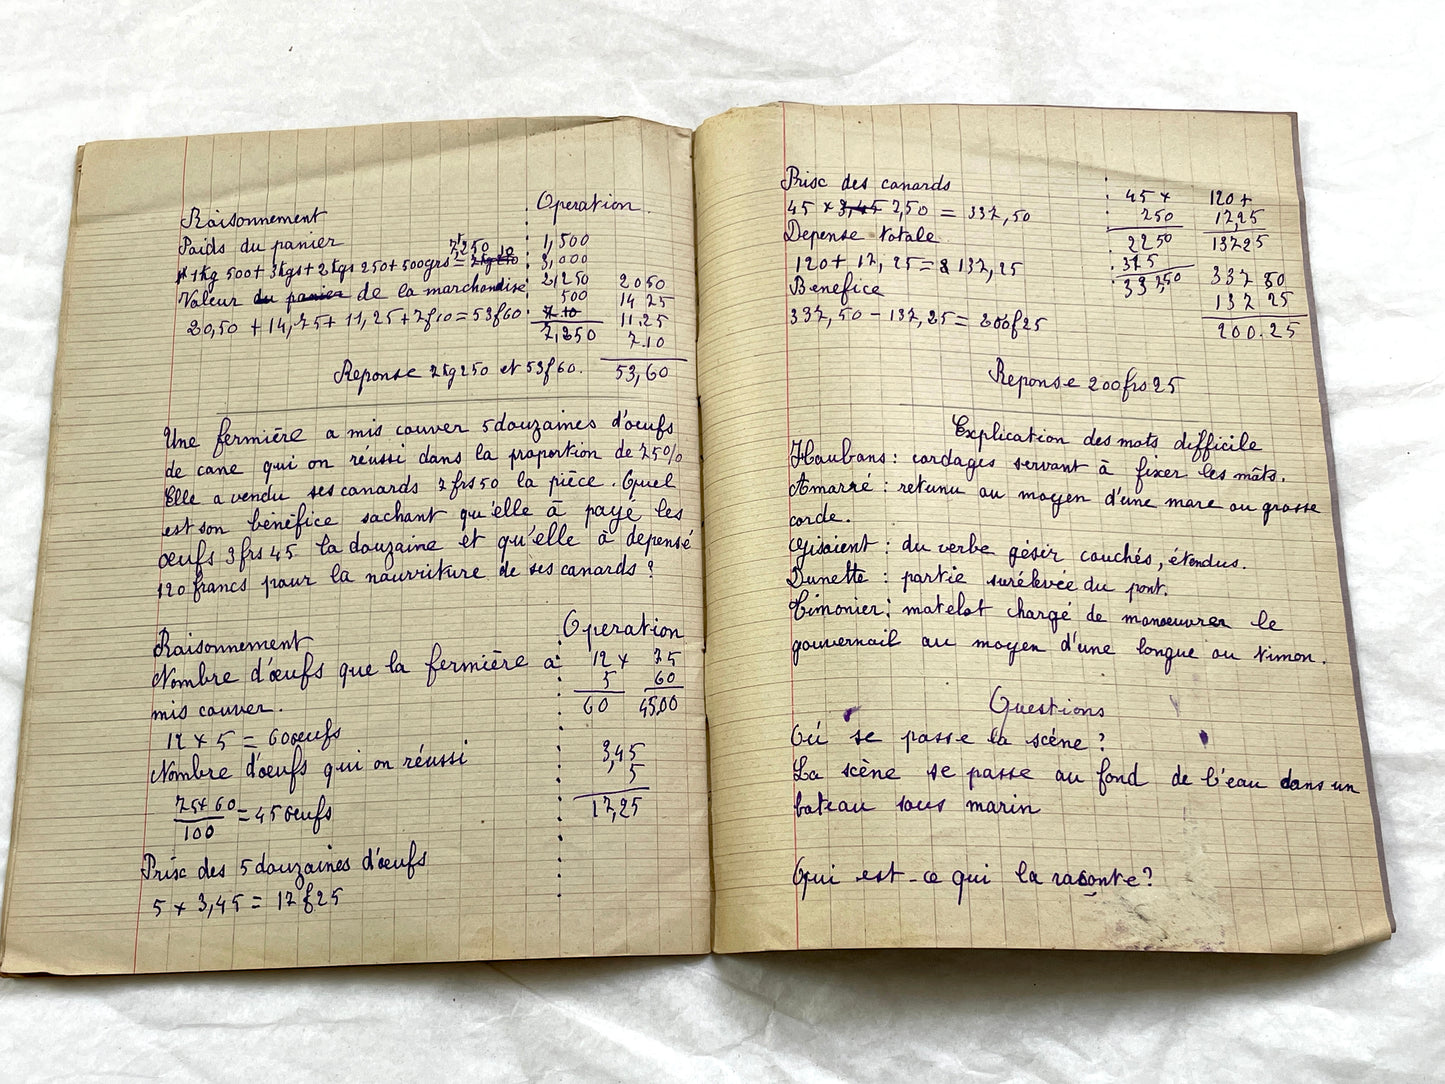 Raisonnement
Operation
Poids du panier
1kg 500 + 3kgs + 2kgs 250 + 500grs = 7k250
Valeur du panier de la marchandise
20,50 + 14,75 + 11,25 + 7f10 = 53f60
1,500
3,000
2,250
500
7.10
7,250
2050
14 75
11.25
7.10
53,60
Reponse 7kg250 et 53f60.
Une fermière a mis couver 5 douzaines d'œufs
de cane qui on réussi dans la proportion de 75%
Elle a vendu ses canards 7frs50 la pièce. Quel
est son bénéfice sachant qu'elle à payé les
œufs 3frs45 la douzaine et qu'elle à depensé
120 francs pour la nourriture de ses canards ?
Raisonnement
Operation
Nombre d'œufs que la fermière a
mis couver.
12 x 5 = 60œufs
Nombre d'œufs qui on réussi
75 x 60
100
= 45 œufs
Prix des 5 douzaines d'œufs
5 x 3,45 = 17f25
12 x
5
60
75
60
4500
3,45
5
17,25
Prix des canards
45 x 3,45 7,50 = 337,50
Depense totale
120 + 17,25 = 137,25
Benefice
337,50 - 137,25 = 200f25
45 x
750
2250
315
337,50
120 +
17,25
137 25
337 50
137 25
200.25
Reponse 200frs25
Explication des mots difficile
Haubans : cordages servant à fixer les mâts.
Amarré : retenu au moyen d'une mare ou grosse
corde.
Gisaient : du verbe gésir couchés, étendus.
Dunette : partie surélevée du pont.
Timonier : matelot chargé de manœuvrer le
gouvernail au moyen d'une longue ou timon.
Questions
Où se passe la scéne ?
La scène se passe au fond de l'eau dans un
bateau sous marin
Qui est-ce qui la raconte ?